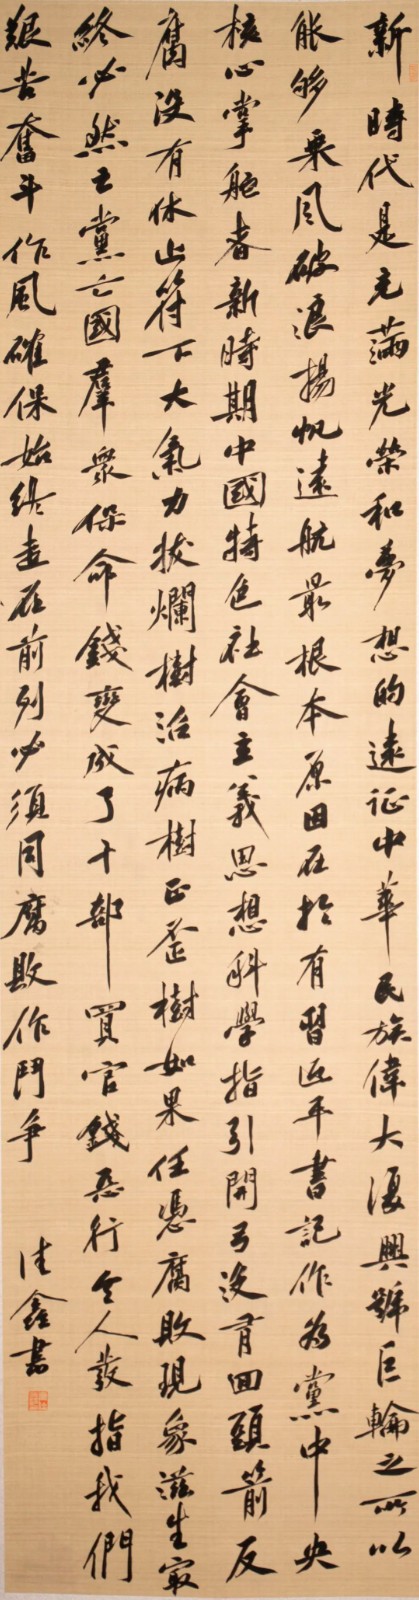 新時代是充滿光榮和夢想的遠征中華民族偉大復興號巨輪之所以
能够乘風破浪揚帆遠航最根本原因在於有習近平書記作為黨中央
核心掌舵者新時期中國特色社會主義思想科學指引開弓沒有回頭箭反
腐沒有休止符下大氣力拔爛樹治病樹正歪樹如果任憑腐敗現象滋生最
終必然亡黨亡國羣衆保命錢變成了干部買官錢惡行令人髮指我們
艱苦奮斗作風確保始終走在前列必須同腐敗作鬥爭
佳鑫書